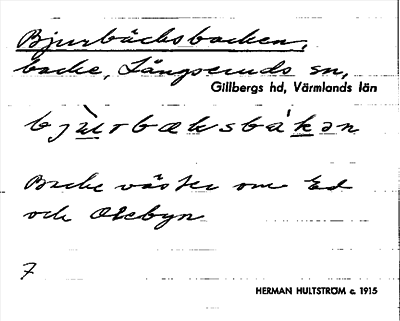 Bjurbäcksbacken,
backe, Långseruds sn,
Gillbergs hd, Värmlands län
bju̠rbæksbàk̠ən
Backe väster om Ed
och Olebyn
7
HERMAN HULTSTRÖM c. 1915